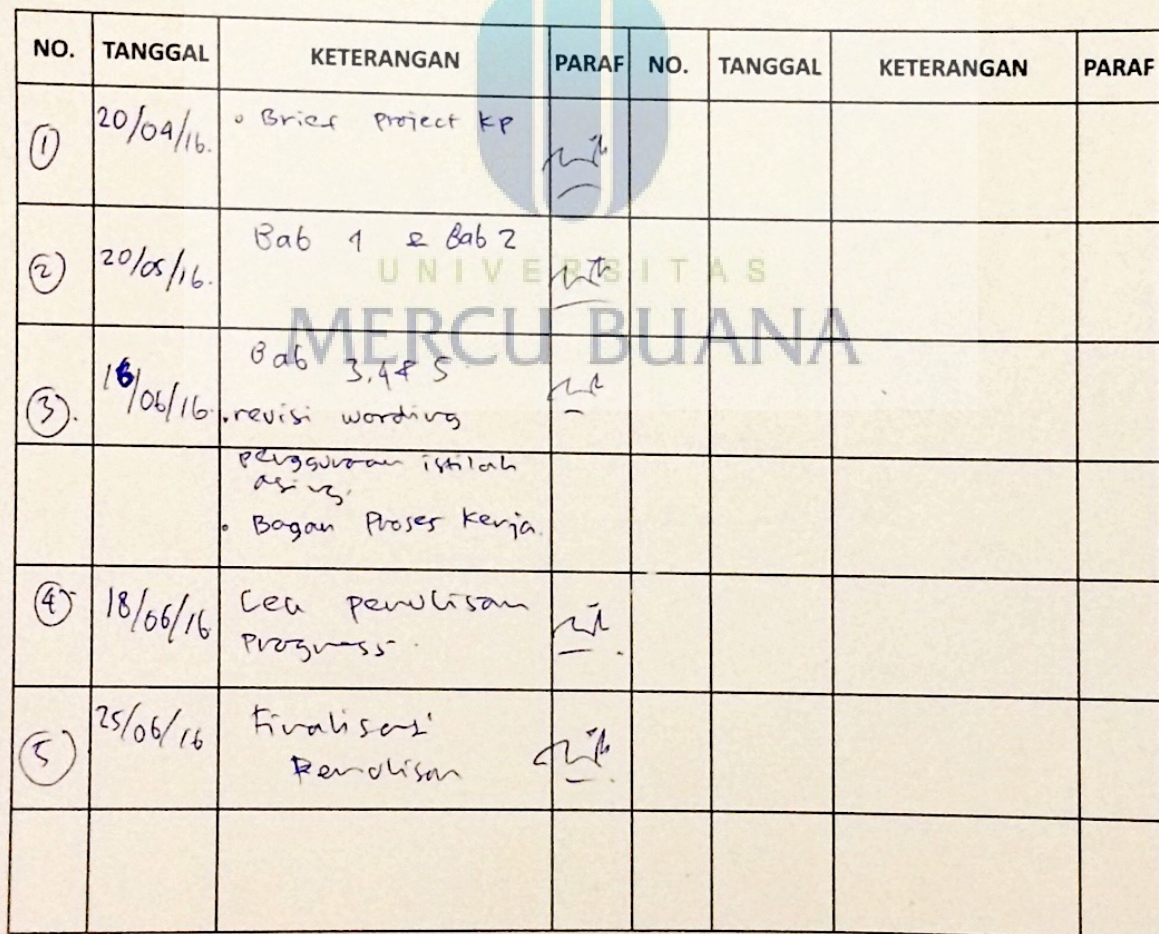 NO. TANGGAL KETERANGAN PARAF NO. TANGGAL KETERANGAN PARAF
1 20/04/16. • Brief Project KP
2 20/05/16. Bab 1 & Bab 2
UNIVERSITAS
MERCU BUANA
3. 16/06/16. Bab 3,4 & 5
• revisi wording
penggunaan istilah
asing
• Bagan Proses Kerja.
4 18/06/16 Cek penulisan
Progress.
5 25/06/16 Finalisasi
Penulisan